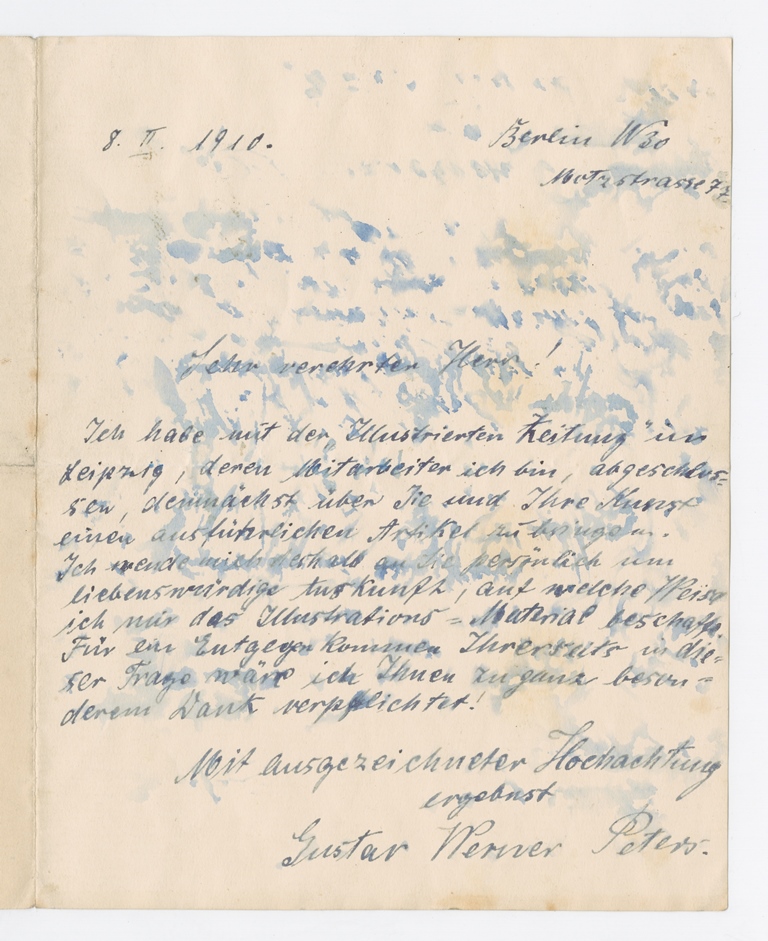 8. II. 1910.
Berlin W30
Motzstrasse 77
Sehr verehrter Herr!
Ich habe mit der „Illustrierten Zeitung" in
Leipzig, deren Mitarbeiter ich bin, abgeschlos-
sen, demnächst über Sie und Ihre Kunst
einen ausführlichen Artikel zu bringen.
Ich wende mich deshalb an Sie persönlich um
liebenswürdige Auskunft, auf welche Weise
ich mir das Illustrations-Material beschaffe.
Für ein Entgegenkommen Ihrerseits in die-
ser Frage wäre ich Ihnen zu ganz beson-
derem Dank verpflichtet!
Mit ausgezeichneter Hochachtung
ergebenst
Gustav Werner Peters.